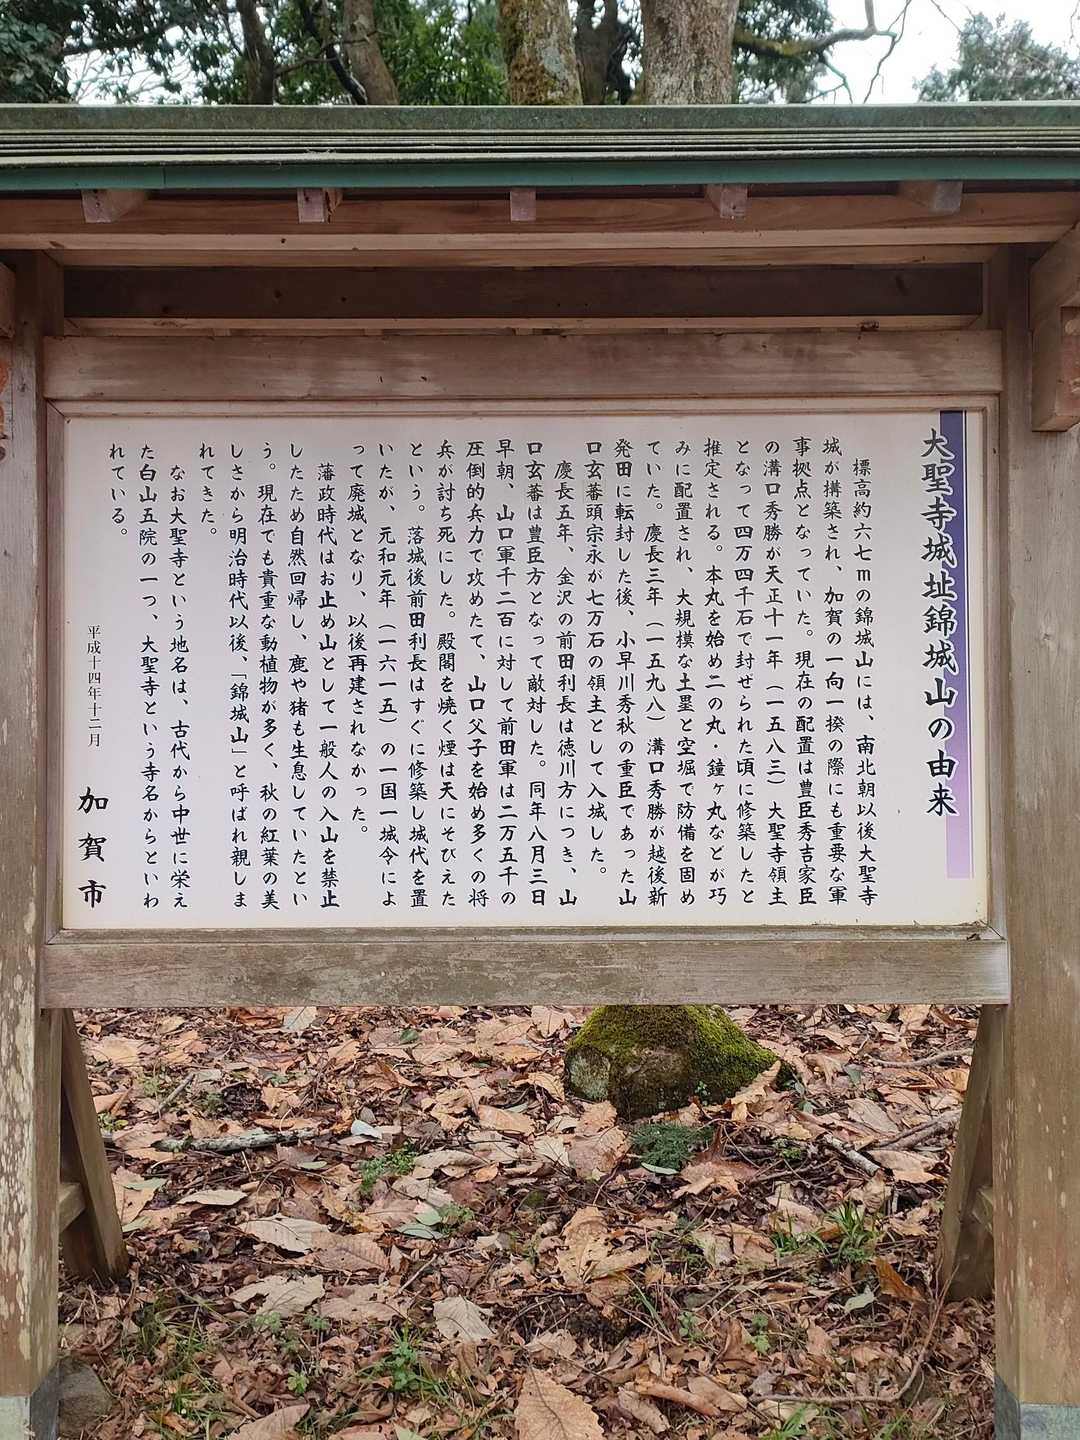 大聖寺城址錦城山の由来
標高約六七mの錦城山には、南北朝以後大聖寺
城が搆築され、加賀の一向一揆の際にも重要な軍
事拠点となっていた。現在の配置は豊臣秀吉家臣
の溝口秀勝が天正十一年（一五八三）大聖寺領主
となって四万四千石で封ぜられた頃に修築したと
推定される。本丸を始め二の丸・鐘ヶ丸などが巧
みに配置され、大規模な土塁と空堀で防備を固め
ていた。慶長三年（一五九八）溝口秀勝が越後新
発田に転封した後、小早川秀秋の重臣であった山
口玄蕃頭宗永が七万石の領主として入城した。
慶長五年、金沢の前田利長は徳川方につき、山
口玄蕃は豊臣方となって敵対した。同年八月三日
早朝、山口軍千二百に対して前田軍は二万五千の
圧倒的兵力で攻めたて、山口父子を始め多くの将
兵が討ち死にした。殿閣を焼く煙は天にそびえた
という。落城後前田利長はすぐに修築し城代を置
いたが、元和元年（一六一五）の一国一城令によ
って廃城となり、以後再建されなかった。
藩政時代はお止め山として一般人の入山を禁止
したため自然回帰し、鹿や猪も生息していたとい
う。現在でも貴重な動植物が多く、秋の紅葉の美
しさから明治時代以後、「錦城山」と呼ばれ親しま
れてきた。
なお大聖寺という地名は、古代から中世に栄え
た白山五院の一つ、大聖寺という寺名からといわ
れている。
平成十四年十二月
加賀市